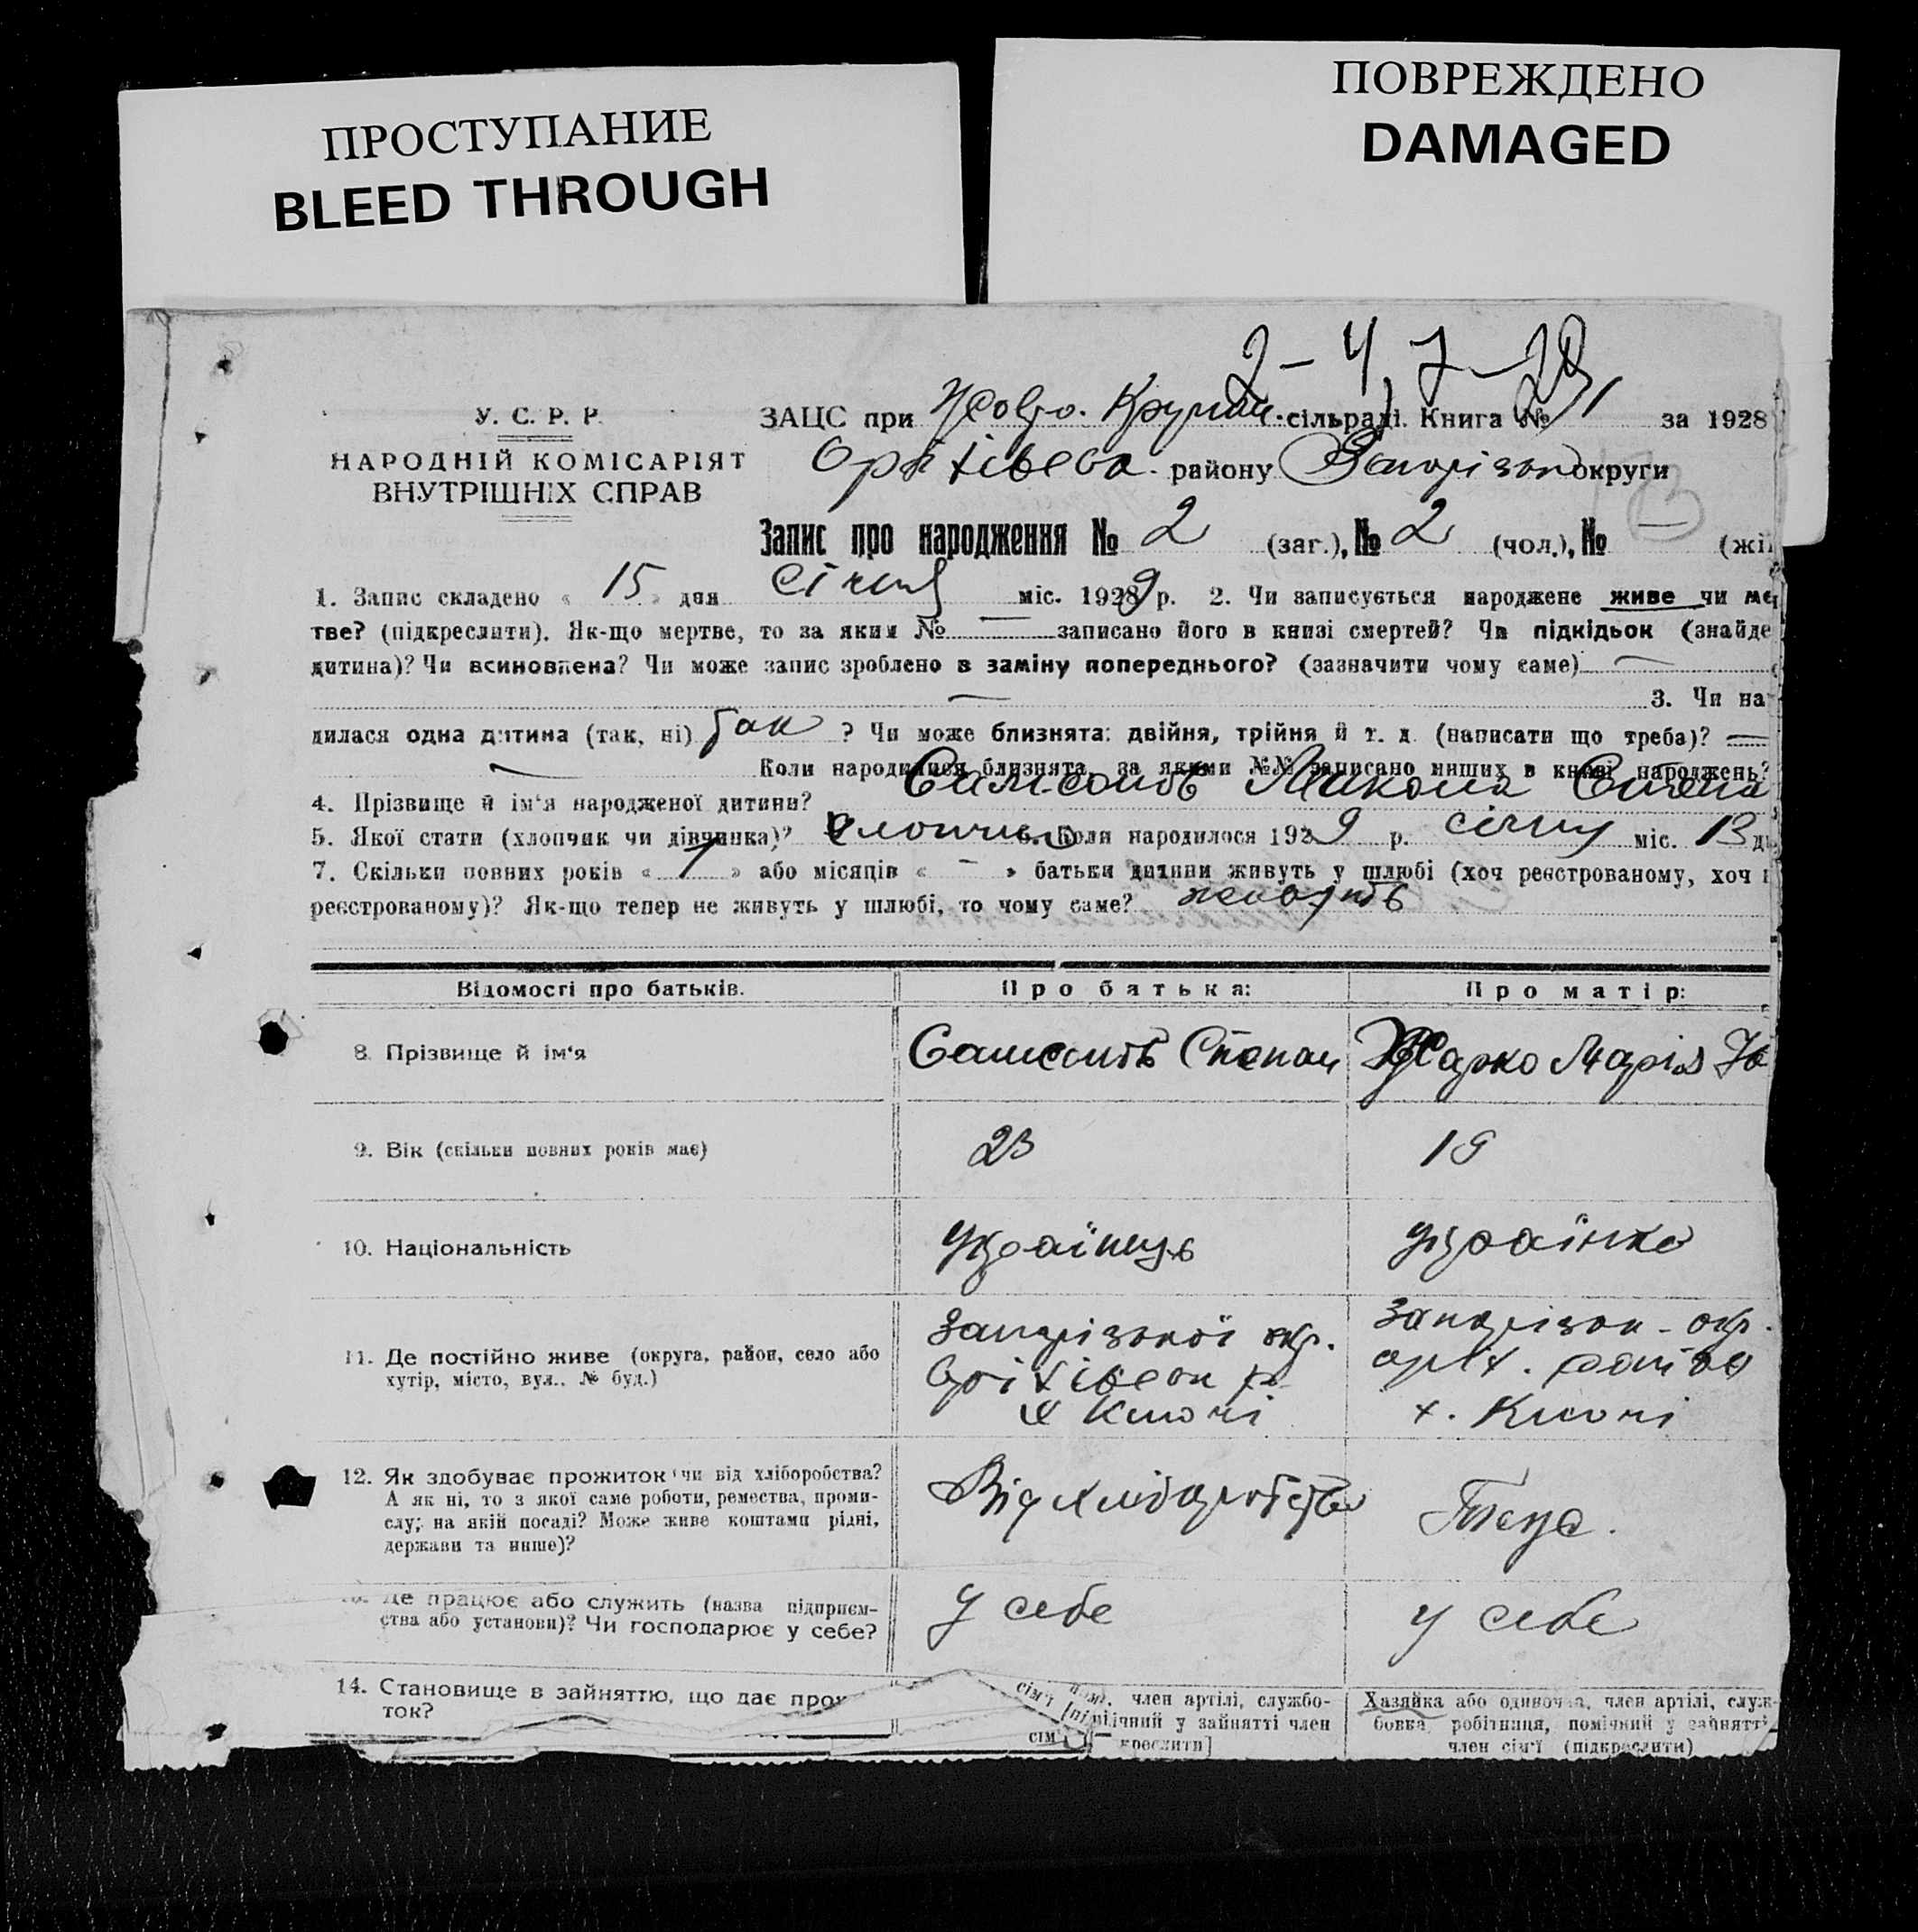 ПРОСТУПАНИЕ
BLEED THROUGH
ПОВРЕЖДЕНО
DAMAGED
У. С. Р. Р.
НАРОДНІЙ КОМІСАРІЯТ
ВНУТРІШНІХ СПРАВ
ЗАЦС при сільраді. Книга № 1 за 1928
Оріхівсько району Запорізької округи
Запис про народження № 2 (заг.), № 2 (чол.), № — (жі
1. Запис складено « 15 » дня січня міс. 1929 р. 2. Чи записується народжене живе чи ме
тве? (підкреслити). Як-що мертве, то за яким № — записано його в книзі смертей? Чи підкідьок (знайде
дитина)? Чи всиновлена? Чи може запис зроблено в заміну попереднього? (зазначити чому саме) —
— 3. Чи на
дилася одна дитина (так, ні) так ? Чи може близнята: двійня, трійня й т. д. (написати що треба)? —
— Коли народилися близнята, за якими №№ записано инших в книзі народжень?
4. Прізвище й ім'я народженої дитини? Самсонъ Микола Степа
5. Якої стати (хлопчик чи дівчинка)? Хлопчик Коли народилося 1929 р. січня міс. 13 д
7. Скільки повних років « 1 » або місяців « — » батьки дитини живуть у шлюбі (хоч реєстрованому, хоч
реєстрованому)? Як-що тепер не живуть у шлюбі, то чому саме?
Відомості про батьків.
Про батька:
Про матір:
8. Прізвище й ім'я
Самсонъ Степан
Жарко Марія
9. Вік (скільки повних років має)
23
19
10. Національність
Українець
українка
11. Де постійно живе (округа, район, село або
хутір, місто, вул., № буд.)
Запорізької окр.
Оріхівськ р.
х Клточі
Запорізьк - окр.
оріх. району
х.
12. Як здобуває прожиток чи від хліборобства?
А як ні, то з якої саме роботи, ремества, проми-
слу; на якій посаді? Може живе коштами рідні,
держави та инше)?
Від хліборобства
13. Де працює або служить (назва підприєм-
ства або установи)? Чи господарює у себе?
У себе
у себе
14. Становище в зайняттю, що дає про
ток?
член артілі, службо-
помічний у зайнятті член
сім
креслити]
Хазяйка або одиночка, член артілі, служ-
бовка, робітниця, помічний у зайнятті
член сім'ї (підкреслити)